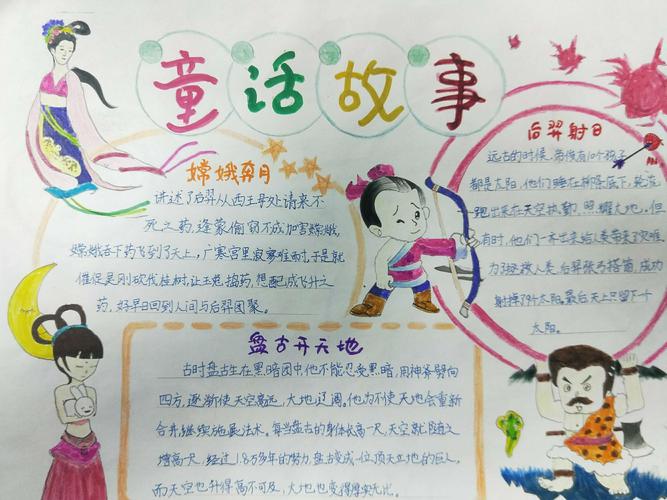 童话故事
嫦娥奔月
讲述了后羿从西王母处请来不
死之药,逢蒙偷窃不成加害嫦娥,
嫦娥吞下药飞到了天上,广寒宫里寂寥难耐,于是就
催促吴刚砍伐桂树,让玉兔捣药,想配成飞升之
药,好早日回到人间与后羿团聚。
后羿射日
远古的时候,帝俊有10个孩子
都是太阳,他们睡在树底下,轮流
跑出来在天空执勤,照耀大地。但
有时,他们一齐出来给人类带来了灾难
为了拯救人类,后羿张弓搭箭,成功
射掉了9个太阳。最后天上只留下一个
太阳。
盘古开天地
古时盘古生在黑暗团中,他不能忍受黑暗,用神斧劈向
四方,逐渐使天空高远,大地辽阔。他为不使天地会重新
合并,继续施展法术。每当盘古的身体长高一尺,天空就随之
增高一尺,经过1.8万多年的努力,盘古变成一位顶天立地的巨人,
而天空也升得高不可及,大地也变得厚实无比。